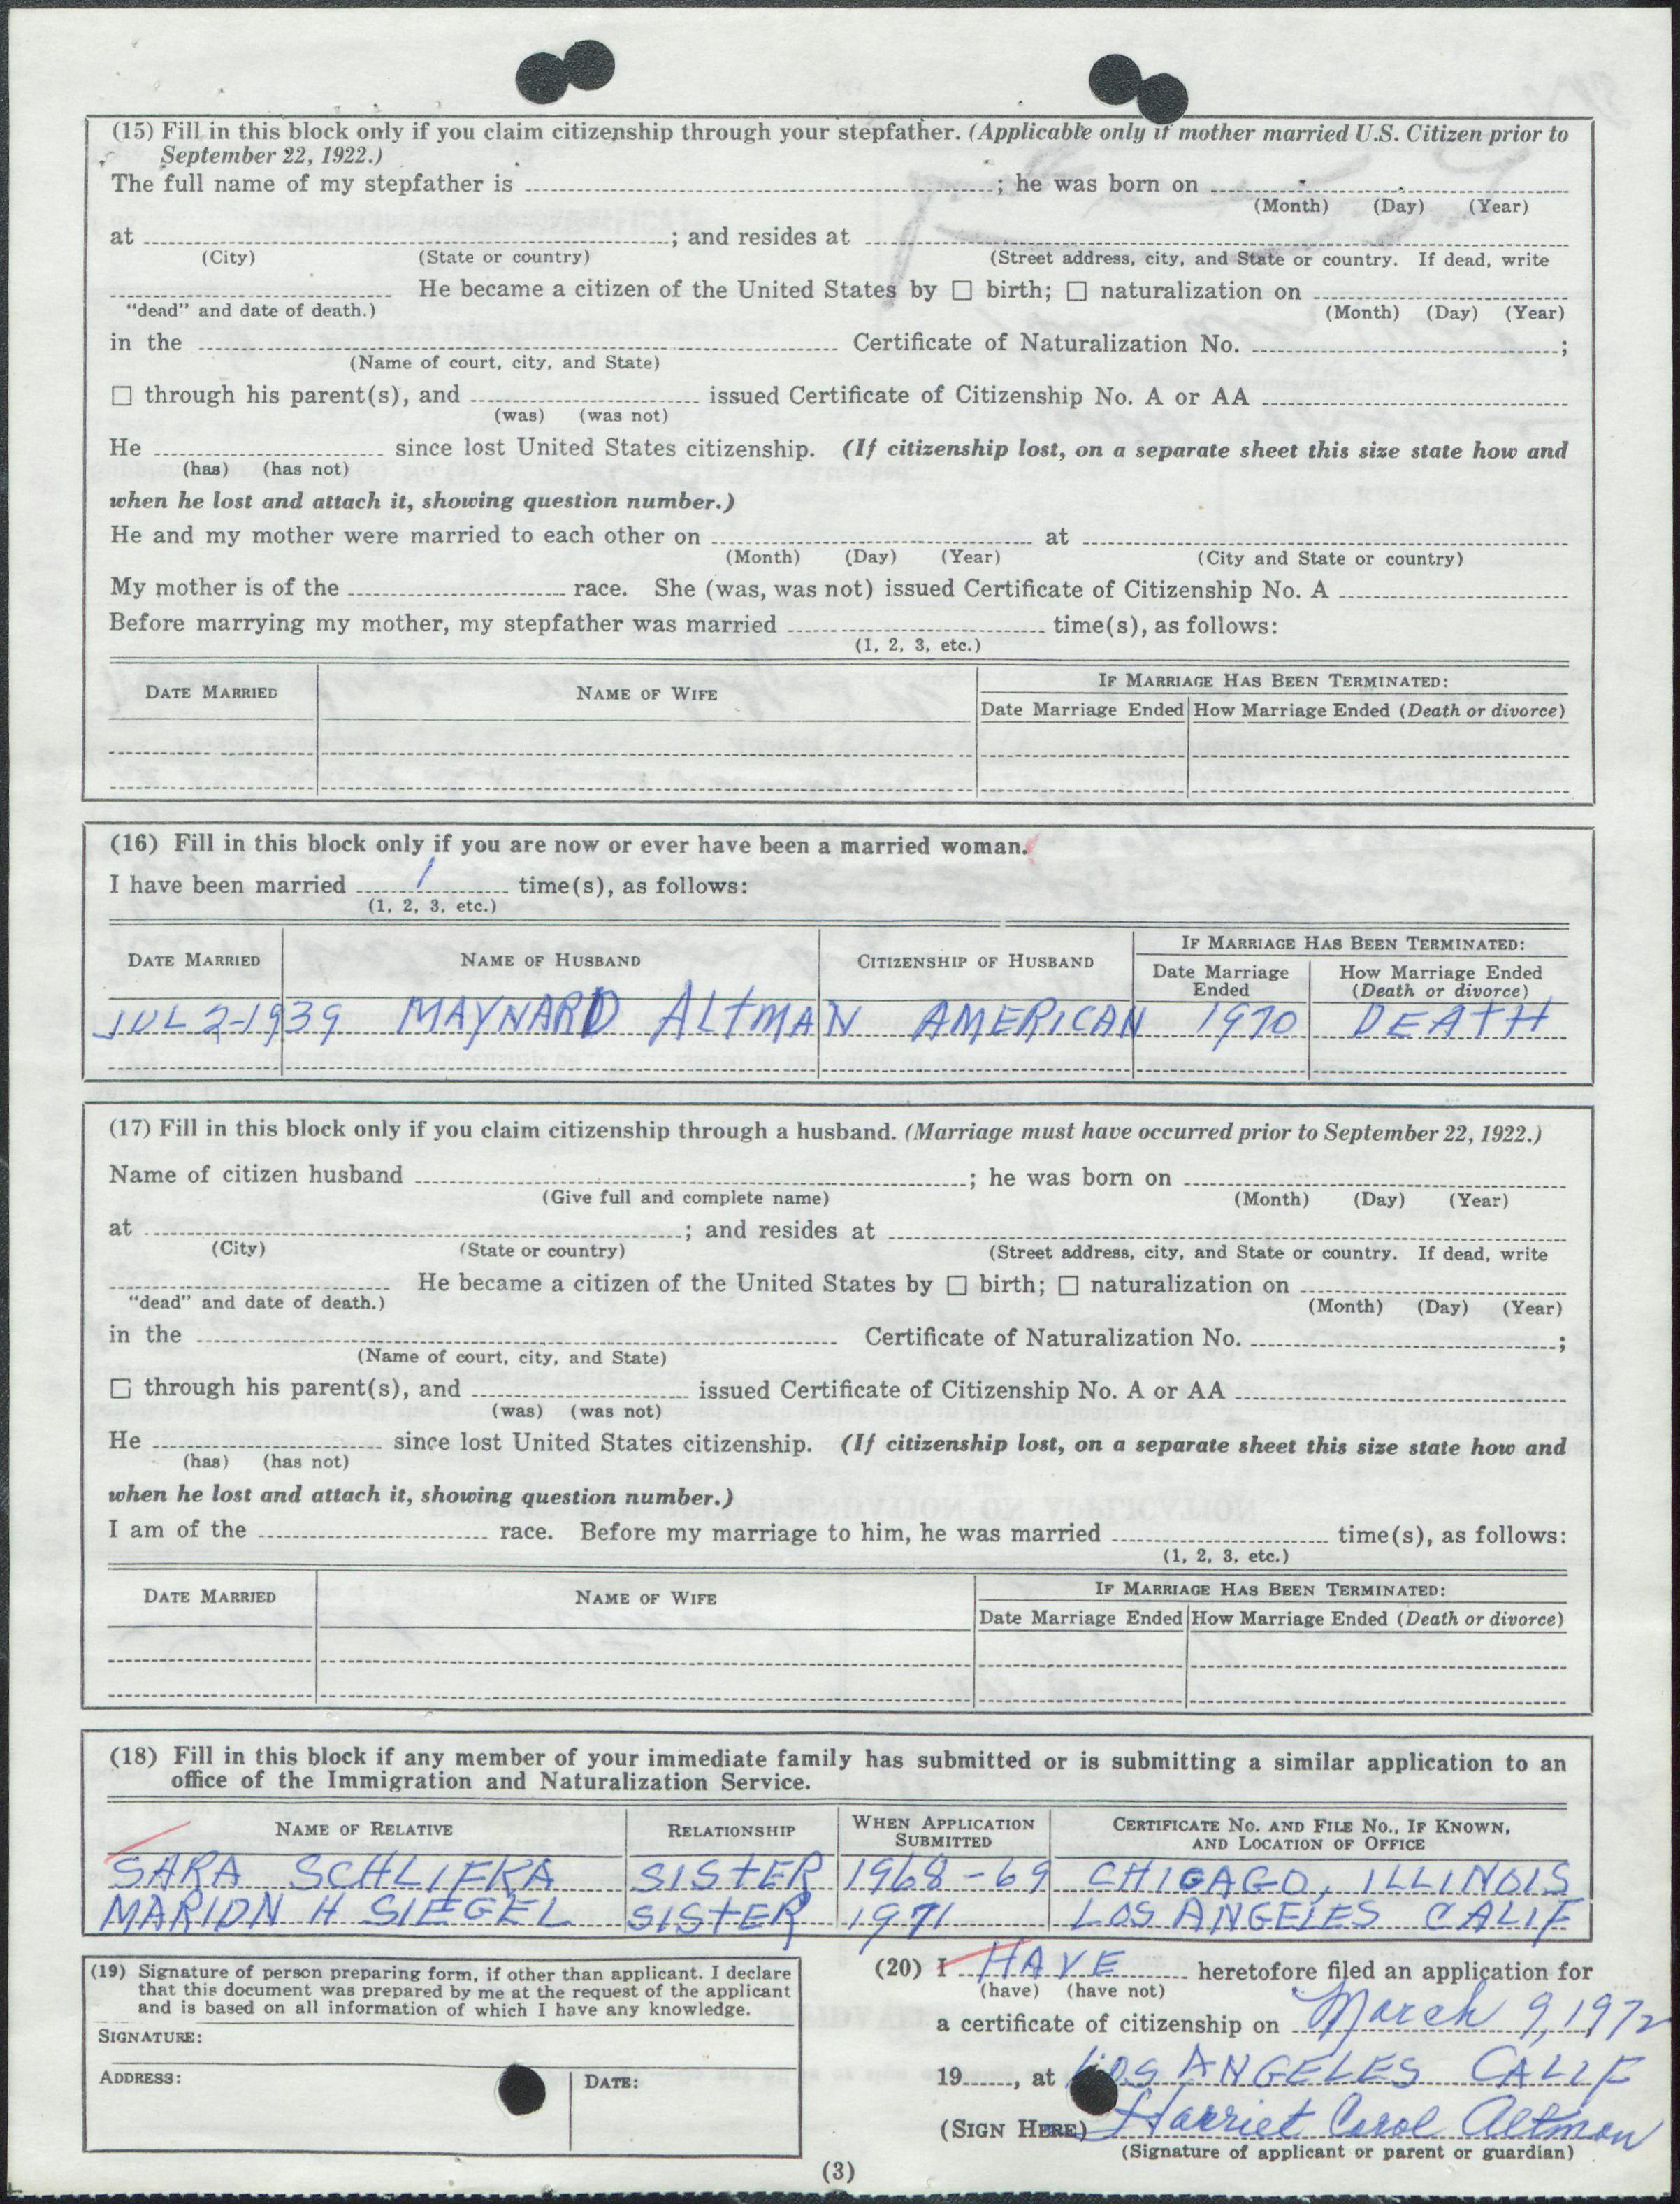 (15) Fill in this block only if you claim citizenship through your stepfather. (Applicable only if mother married U.S. Citizen prior to
September 22, 1922.)
The full name of my stepfather is ; he was born on
(Month) (Day) (Year)
at ; and resides at
(City) (State or country) (Street address, city, and State or country. If dead, write
He became a citizen of the United States by ☐ birth; ☐ naturalization on
"dead" and date of death.) (Month) (Day) (Year)
in the Certificate of Naturalization No. ;
(Name of court, city, and State)
☐ through his parent(s), and issued Certificate of Citizenship No. A or AA
(was) (was not)
He since lost United States citizenship. (If citizenship lost, on a separate sheet this size state how and
(has) (has not)
when he lost and attach it, showing question number.)
He and my mother were married to each other on at
(Month) (Day) (Year) (City and State or country)
My mother is of the race. She (was, was not) issued Certificate of Citizenship No. A
Before marrying my mother, my stepfather was married time(s), as follows:
(1, 2, 3, etc.)
IF MARRIAGE HAS BEEN TERMINATED:
DATE MARRIED NAME OF WIFE
Date Marriage Ended How Marriage Ended (Death or divorce)
(16) Fill in this block only if you are now or ever have been a married woman.
I have been married 1 time(s), as follows:
(1, 2, 3, etc.)
IF MARRIAGE HAS BEEN TERMINATED:
DATE MARRIED NAME OF HUSBAND CITIZENSHIP OF HUSBAND
Date Marriage How Marriage Ended
Ended (Death or divorce)
JUL 2-1939 MAYNARD ALTMAN AMERICAN 1970 DEATH
(17) Fill in this block only if you claim citizenship through a husband. (Marriage must have occurred prior to September 22, 1922.)
Name of citizen husband ; he was born on
(Give full and complete name) (Month) (Day) (Year)
at ; and resides at
(City) (State or country) (Street address, city, and State or country. If dead, write
He became a citizen of the United States by ☐ birth; ☐ naturalization on
"dead" and date of death.) (Month) (Day) (Year)
in the Certificate of Naturalization No. ;
(Name of court, city, and State)
☐ through his parent(s), and issued Certificate of Citizenship No. A or AA
(was) (was not)
He since lost United States citizenship. (If citizenship lost, on a separate sheet this size state how and
(has) (has not)
when he lost and attach it, showing question number.)
I am of the race. Before my marriage to him, he was married time(s), as follows:
(1, 2, 3, etc.)
IF MARRIAGE HAS BEEN TERMINATED:
DATE MARRIED NAME OF WIFE
Date Marriage Ended How Marriage Ended (Death or divorce)
(18) Fill in this block if any member of your immediate family has submitted or is submitting a similar application to an
office of the Immigration and Naturalization Service.
NAME OF RELATIVE RELATIONSHIP WHEN APPLICATION CERTIFICATE NO. AND FILE NO., IF KNOWN,
SUBMITTED AND LOCATION OF OFFICE
SARA SCHLIFKA SISTER 1968-69 CHICAGO, ILLINOIS
MARION H SIEGEL SISTER 1971 LOS ANGELES CALIF
(19) Signature of person preparing form, if other than applicant. I declare
that this document was prepared by me at the request of the applicant
and is based on all information of which I have any knowledge.
SIGNATURE:
ADDRESS: DATE:
(20) I HAVE heretofore filed an application for
(have) (have not)
a certificate of citizenship on March 9, 1972
19 , at LOS ANGELES CALIF
(SIGN HERE) Harriet Carol Altman
(Signature of applicant or parent or guardian)
(3)